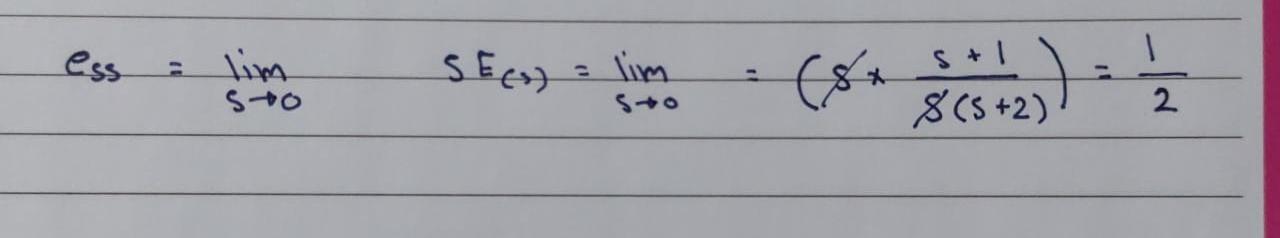 e_ss = lim_{s→0} S E(s) = lim_{s→0} = (s × \frac{s + 1}{s(s+2)}) = \frac{1}{2}